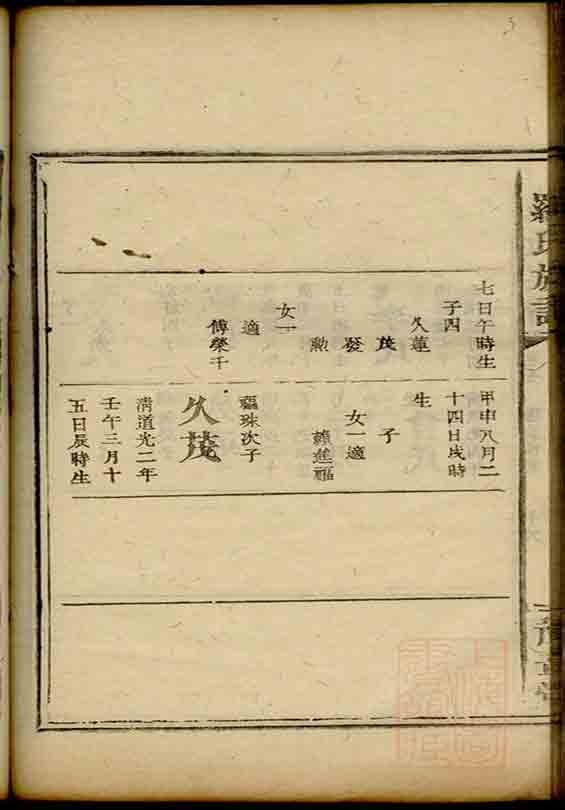 羅氏族譜
七日午時生
子四
久蓮
茂
發
勲
女一
適
傅榮千
甲申八月二
十四日戌時
生
子
女一適
賴進福
福珠次子
久茂
清道光二年
壬午三月十
五日辰時生